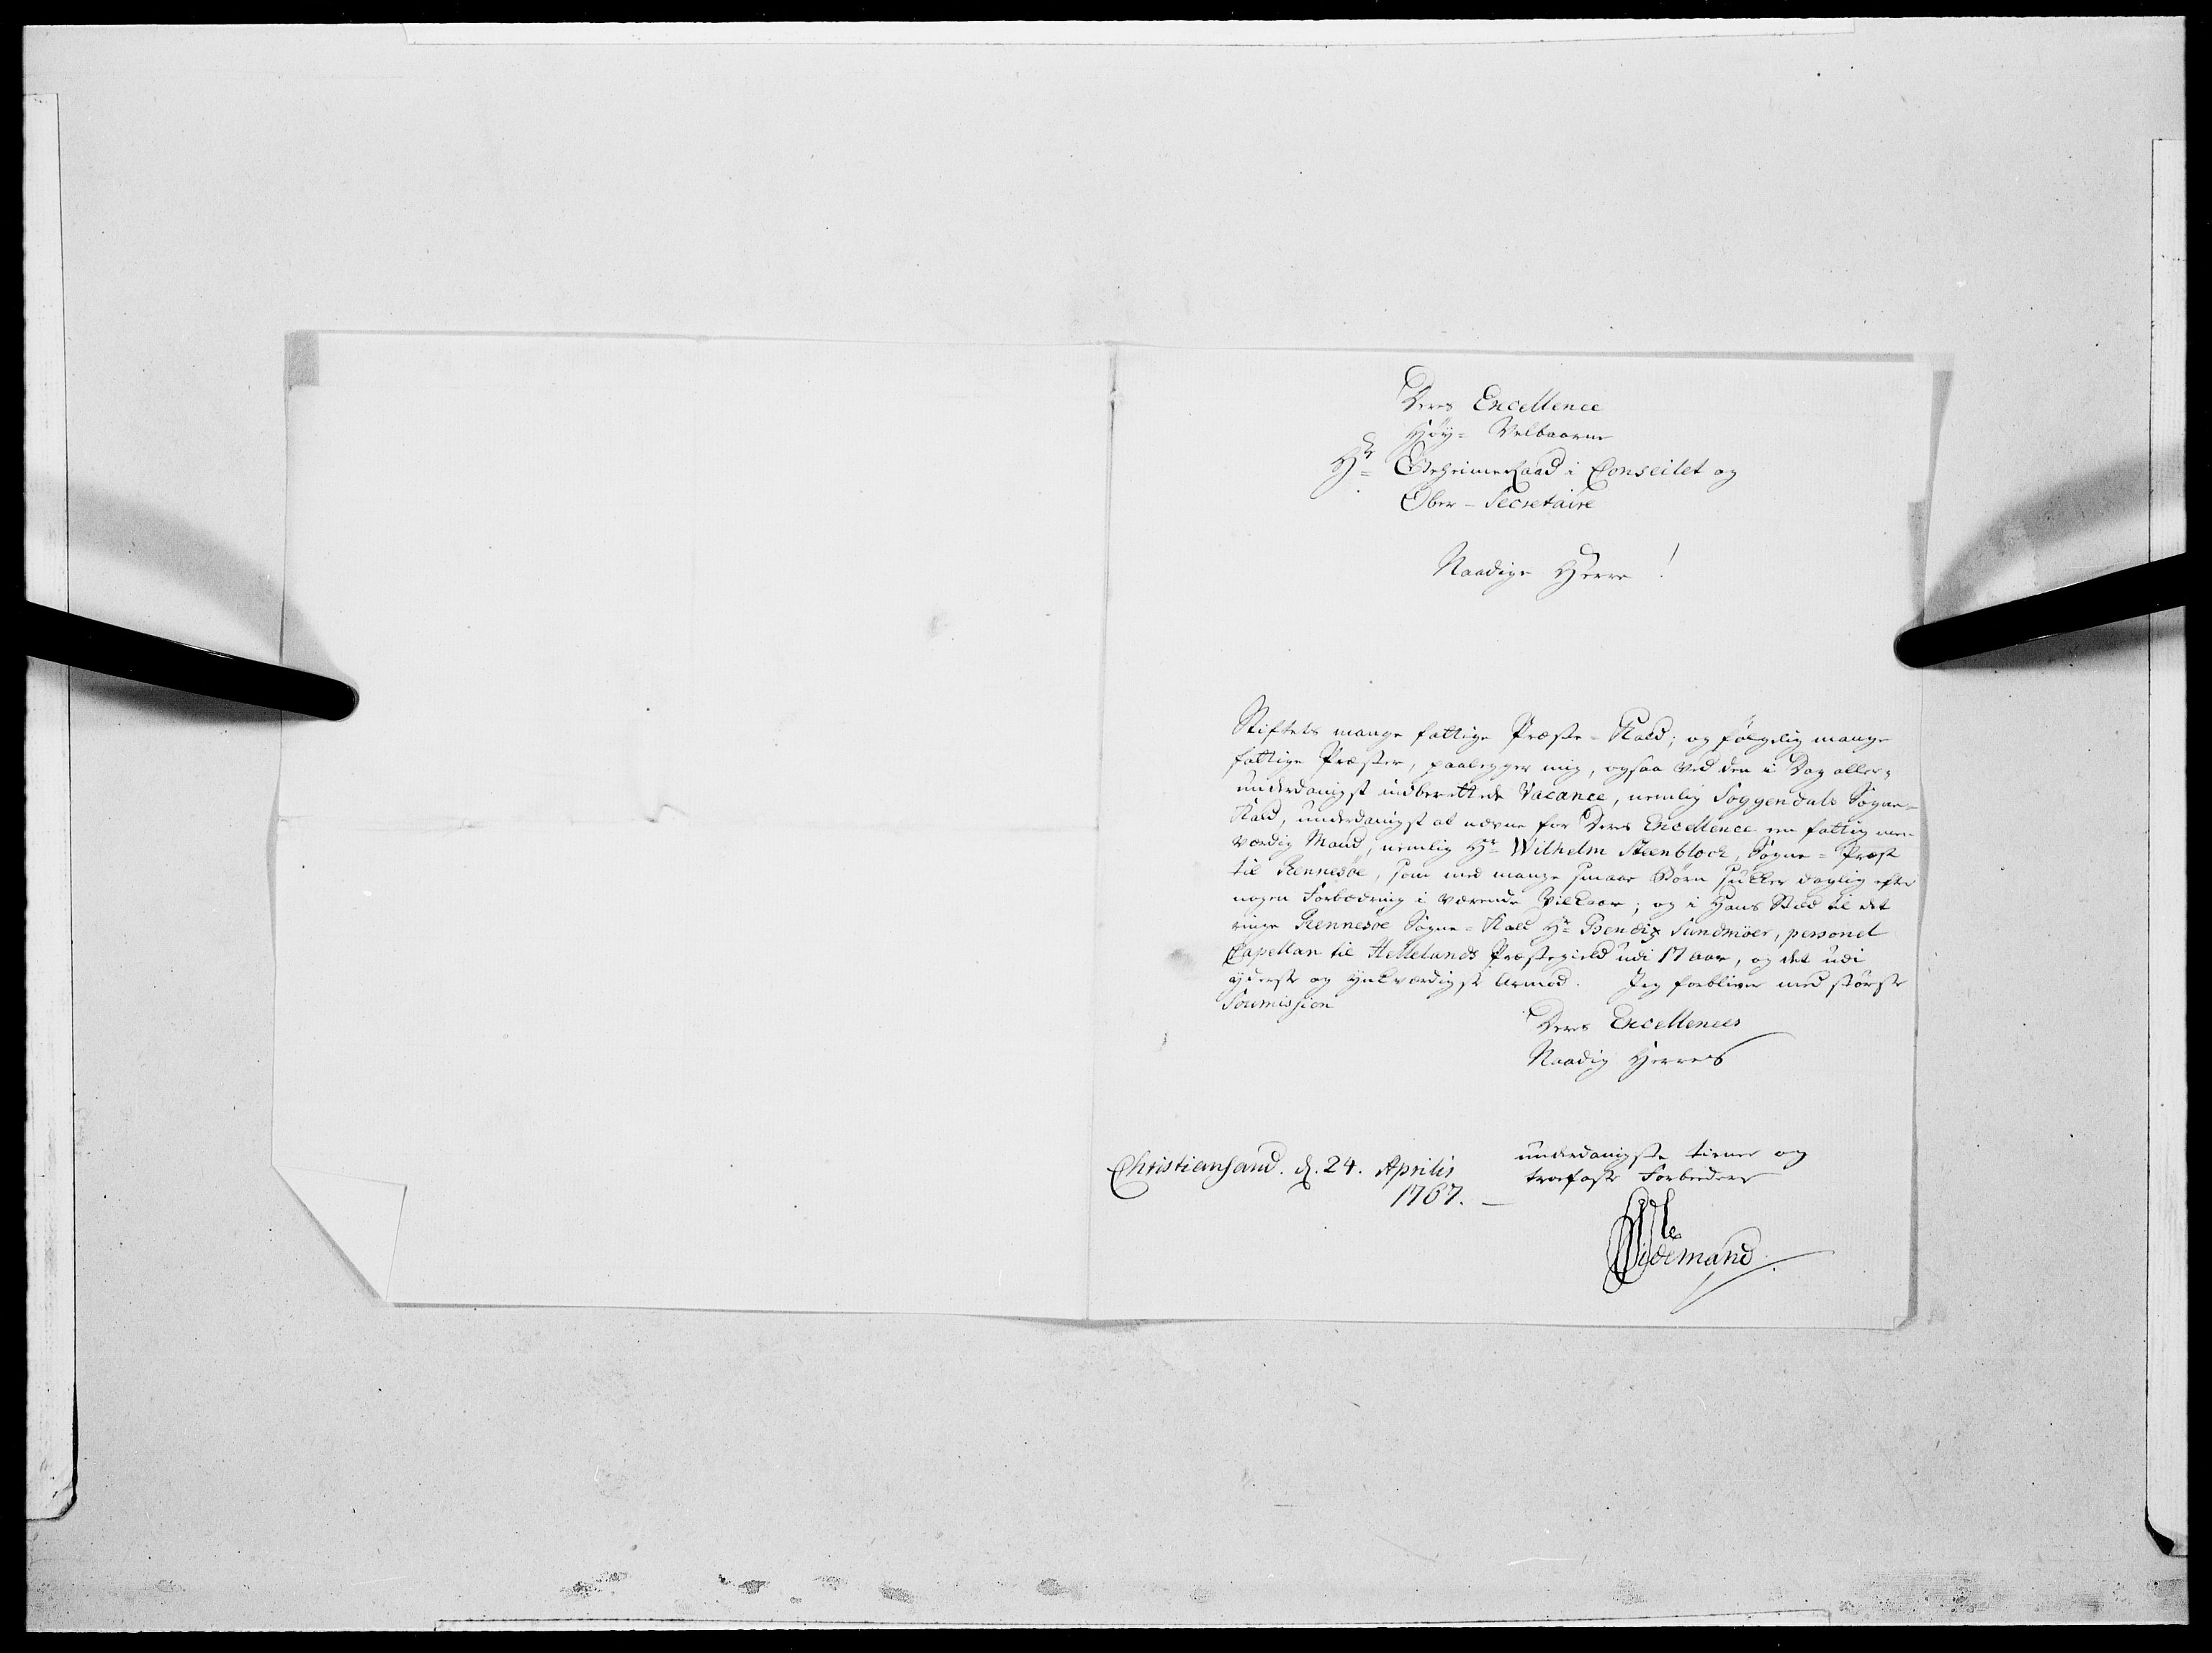 Deres Excellence
Høy- Velbaarne
Hr GeheimeRaad i Conseilet og
Ober-Secretaire
Naadige Herre!
Stiftets mange fattige Præste-Kald; og følgelig mange
fattige Præster, paalegger mig, ogsaa ved den i Dag aller-
underdanigst indberettede Vacance, nemlig Soggendals Sogne-
Kald, underdanigst at nevne for Deres Excellence en fattig men
værdig Mand, nemlig Hr Wilhelm Steenblock, Sogne-Præst
til Rennesøe, som med mange smaae Børn sukker daglig efter
nogen Forbedring i værende Vilkaar; og i Hans Sted til det
ringe Rennesøe Sogne-Kald Hr Bendix Sundmöer, personel
Capellan til Hellelands Præstegield udi 17 aar, og det udi
yderste og ynkværdigste Armod. Jeg forbliver med største
Soumission
Deres Excellences
Naadig Herres
Christiansand. d. 24. Aprilis
1767.
underdanigste tiener og
troefaste Forbedere
Tidemand